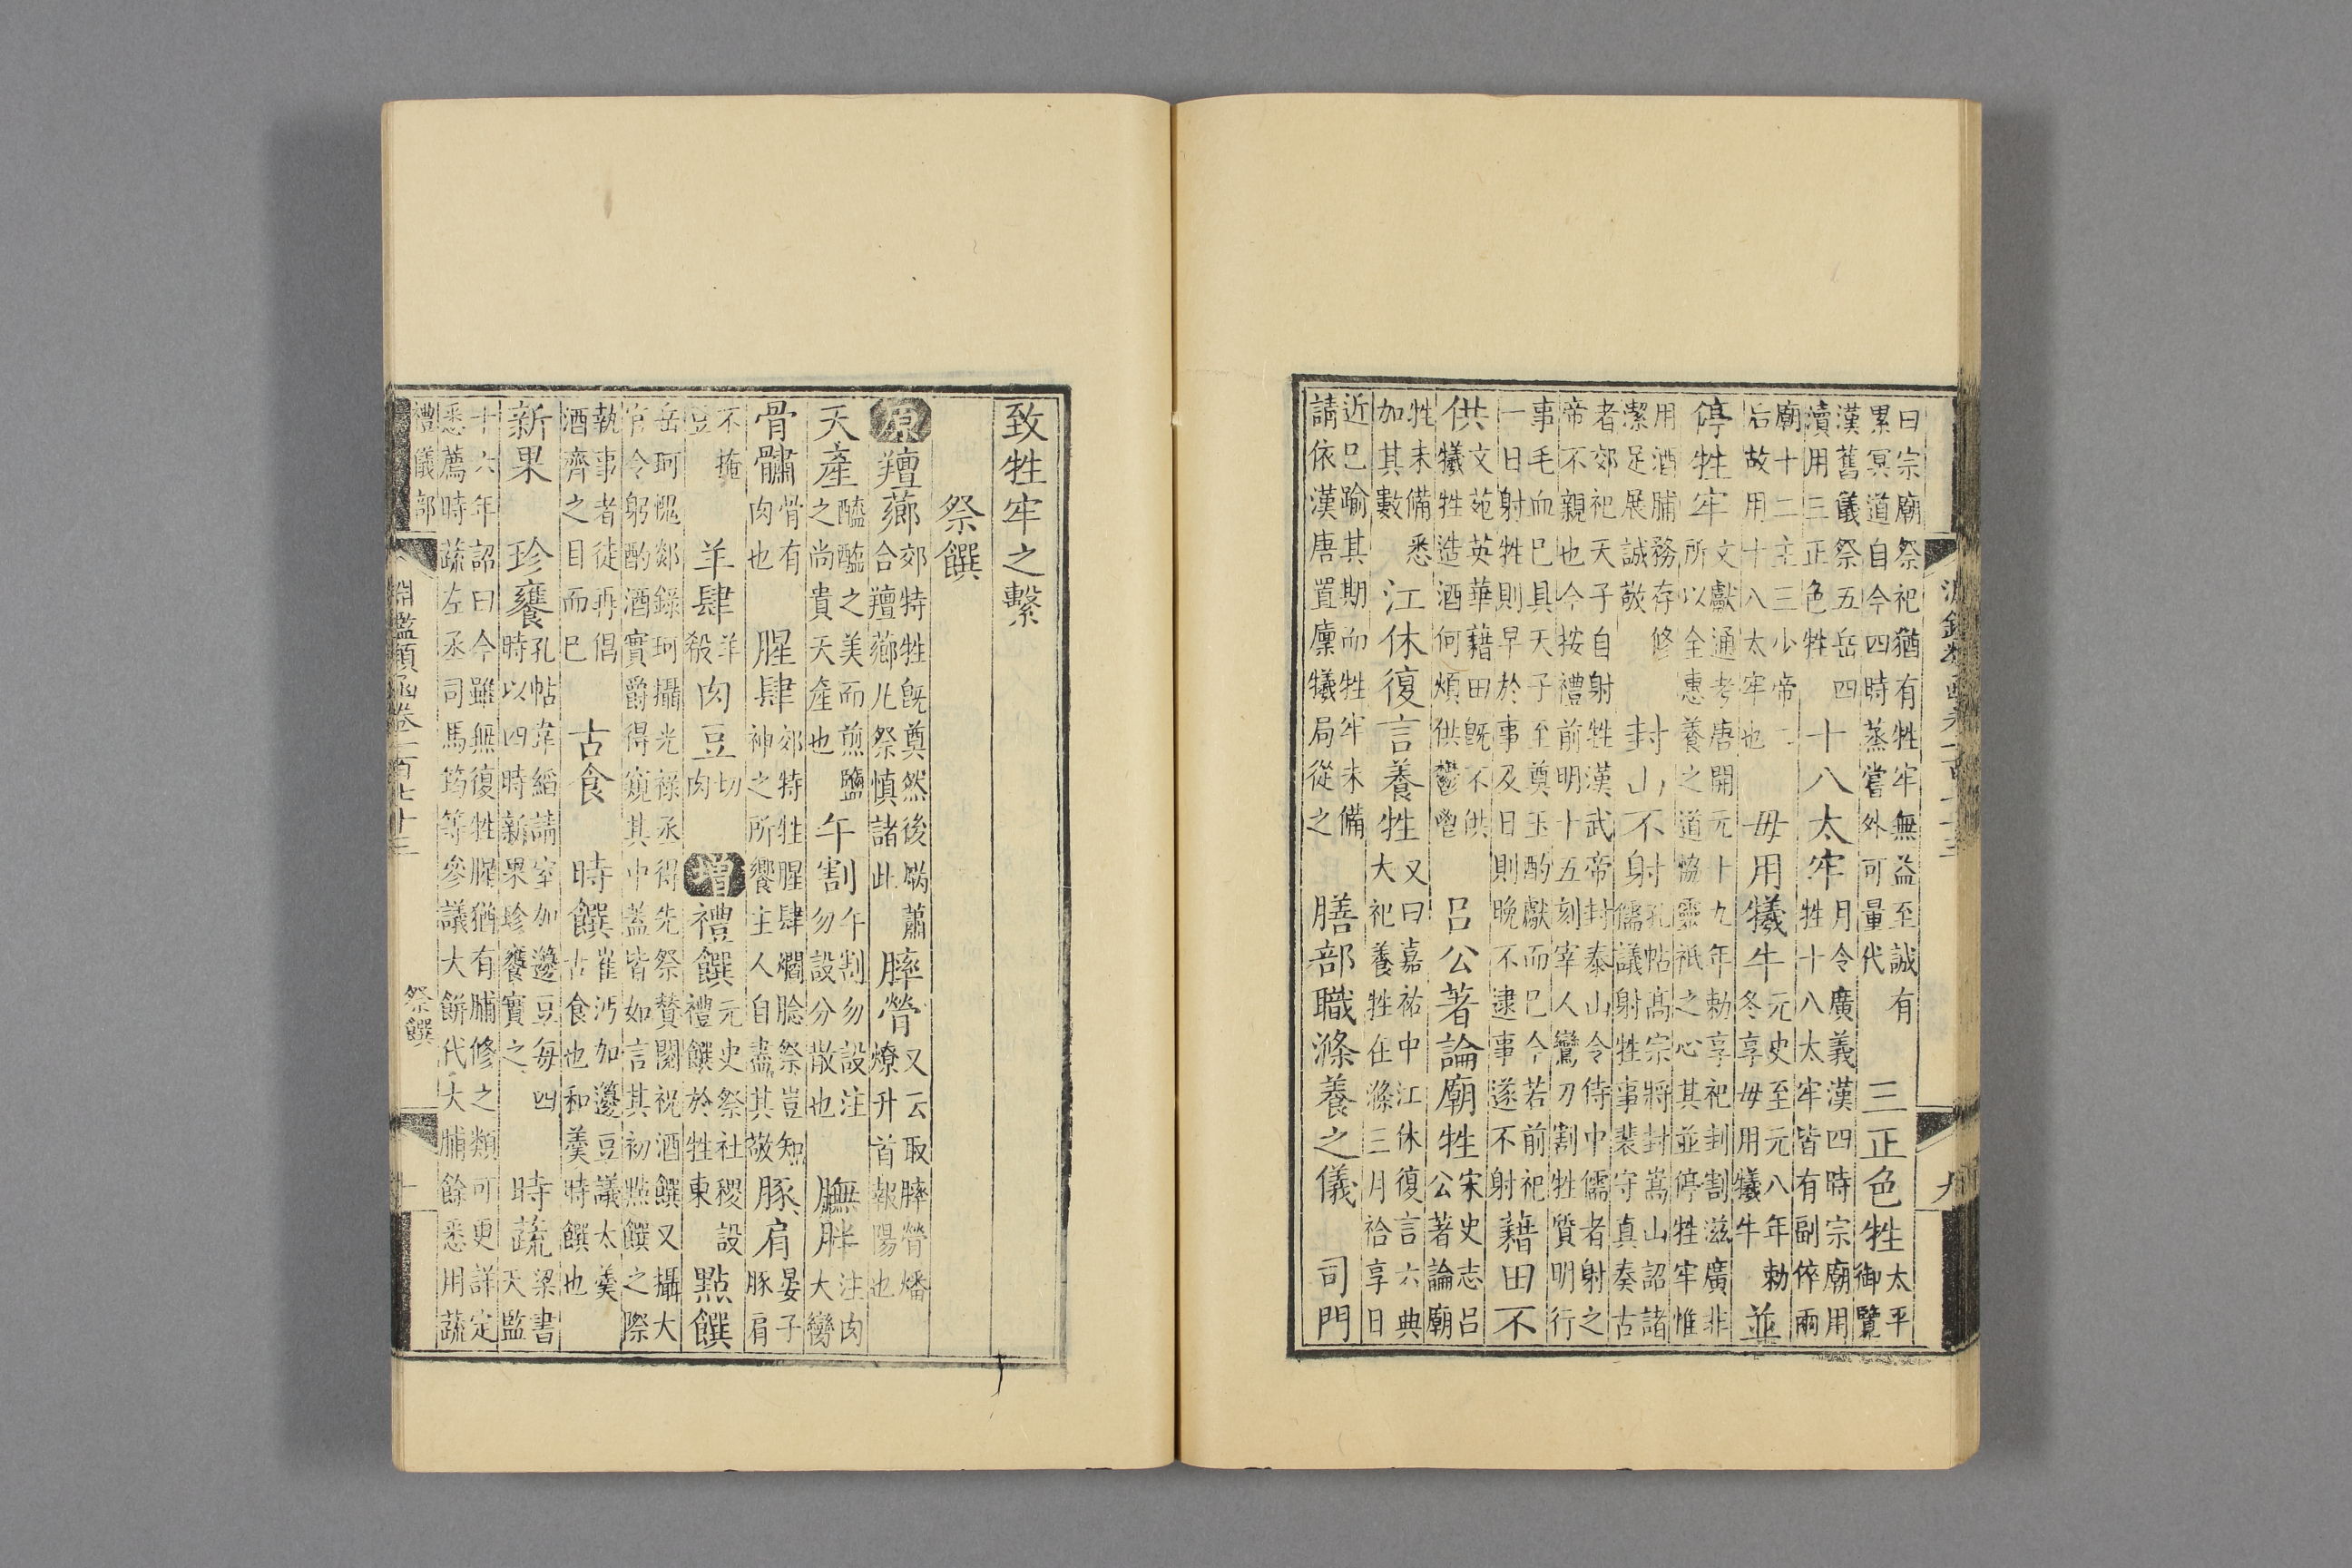 曰宗廟祭祀猶有牲牢無益至誠有累冥道自今四時蒸嘗外可量代 三正色牲 太平御覽
漢舊儀祭五岳四瀆用三正色牲 十八太牢 月令廣義漢四時宗廟用牲十八太牢皆有副倅兩
廟十二主三小帝二后故用十八太牢也 毋用犧牛 元史至元八年勅冬享毋用犧牛 並
停牲牢 文獻通考唐開元十九年勅享祀封割滋廣非所以全惠養之道恊靈祇之心其並停牲牢惟
用酒脯務存修潔足展誠敬 封山不射 孔帖高宗將封嵩山詔諸儒議射牲事裴守真奏古
者郊祀天子自射牲漢武帝封泰山令侍中儒者射之帝不親也今按禮前明十五刻宰人鸞刀割牲質明行
事毛血已具天子至奠玉酌獻而已今若前祀一日射牲則早於事及日則晚不逮事遂不射 藉田不
供 文苑英華藉田既不供犧牲造酒何煩供鬱鬯 呂公著論廟牲 宋史志呂公著論廟
牲未備悉加其數 江休復言養牲 又曰嘉祐中江休復言六典大祀養牲在滌三月祫享日
近已踰其期而牲牢未備請依漢唐置廩犧局從之 膳部職滌養之儀 司門
九
致牲牢之繫
祭饌
原 羶薌 郊特牲既奠然後焫蕭合羶薌凡祭慎諸此 膟膋 又云取膟膋燔燎升首報陽也
天產 醯醢之美而煎鹽之尚貴天產也 午割 午割勿設注勿設分散也 膴胖 注肉大臠
骨鱐 骨有肉也 腥肆 郊特牲腥肆爓腍祭豈知神之所饗主人自盡其敬 豚肩 晏子豚肩
不掩豆 羊肆 羊殺 肉豆 切肉 增 禮饌 元史祭社稷設禮饌於牲東 點饌
岳珂愧郯錄珂攝光祿丞得先祭贊閱視酒饌又攝大官令躬酌酒實爵得窺其中蓋皆如言其初點饌之際
執事者徒再倡酒齊之目而已 古食 時饌 崔沔加籩豆議太羹古食也和羹時饌也
新果 珍饔 孔帖韋縚請室加籩豆每四時以四時新果珍饔實之 時蔬 梁書天監
十六年詔曰今雖無復牲腥猶有脯修之類可更詳定悉薦時蔬左丞司馬筠等參議大餅代大脯餘悉用蔬
禮儀部 淵鑑類函卷一百七十三 祭饌